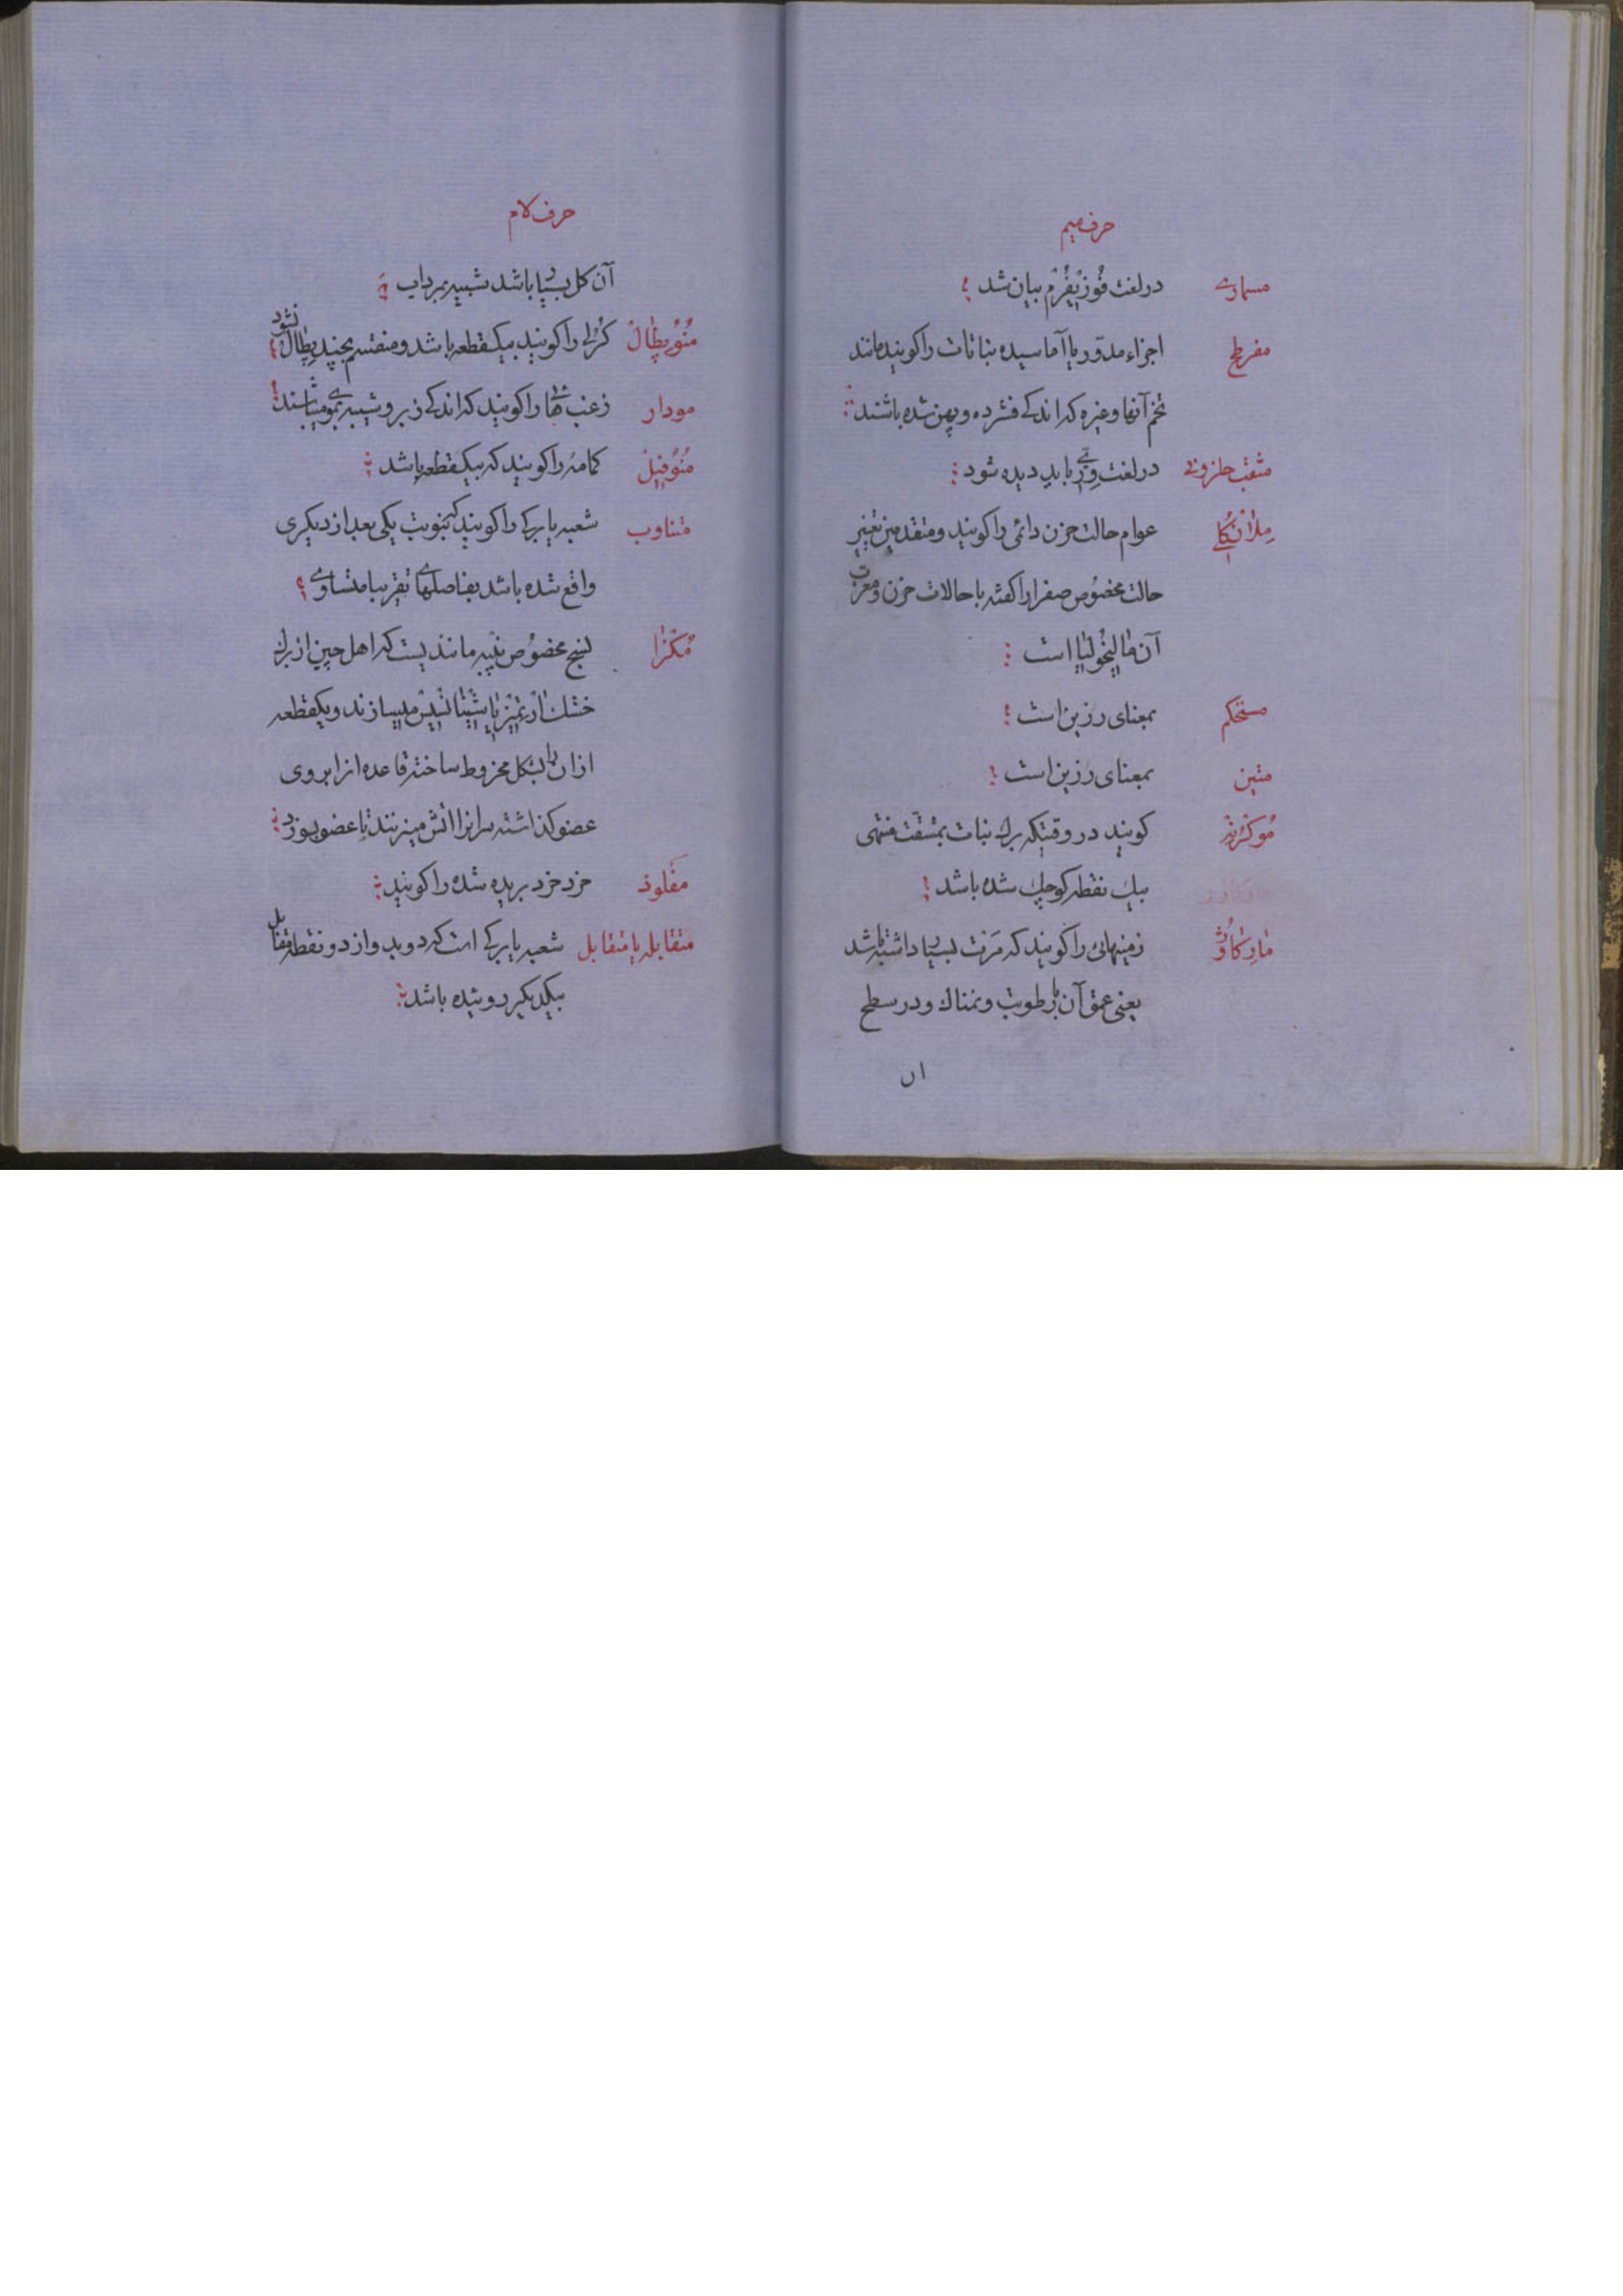 حرف میم
مسماری درلغت فُوزیْفُرْم بیان شد
مفرطح اجزاء مدوّر یا آماسیده نباتات را کویند مانند
تخم آنها و غیره که اندکی فشرده و پهن شده باشند
مثقب حلزونی درلغت باید دیده شود
مِلاٰنْکُلی عوام حالت حزن دائمی را کویند و متقدمین تغییر
حالت مخصُوص صفرا را کفته با حالات حزن و معرب
آن مٰالیخُولیٰا است
مستحکم بمعنای رزین است
متین بمعنای رزین است
مُوکرُنه کویند در وقتیکه برك نبات بمشقت منتهی
بیك نقطه کوچك شده باشد
مٰارِکٰاوُژ زمینهائی را کویند که مَرَنت بسیار داشته باشد
یعنی عمق آن با رطوبت و نمناك و در سطح
ان
حرف لام
آن کل بسیار باشد شبیه بمرداب
مُنُوپِطٰالْ کُرُلی را کویند بیکقطعه باشد و منقسم بچند پِطٰالْ نشود
مودار زغب هائی را کویند که اندکی زبر و شبیه بموی میباشند
مُنُوفیِلْ کمامهٔ را کویند که بیکقطعه باشد
متناوب شعبه یا برکی را کویند که بنوبت یکی بعد از دیکری
واقع شده باشد بفاصلهای تقریبا متساوی
مُکْزٰا نسج مخصُوص پنبه مانندیست که اهل چین از برك
خشك اَرْتِمیْزیٰا شِیْنانْسِیْسْ میسازند و یکقطعه
از ان را بشکل مخروط ساخته قاعده انرا بروی
عضو کذاشته سر انرا اتش میزنند تا عضو بسوزد
مفلوذ خرد خرد بریده شده را کویند
متقابله یا متقابل شعبه یا برکی است که دو بدو از دو نقطه مقابل
بیکدیکر روئیده باشد